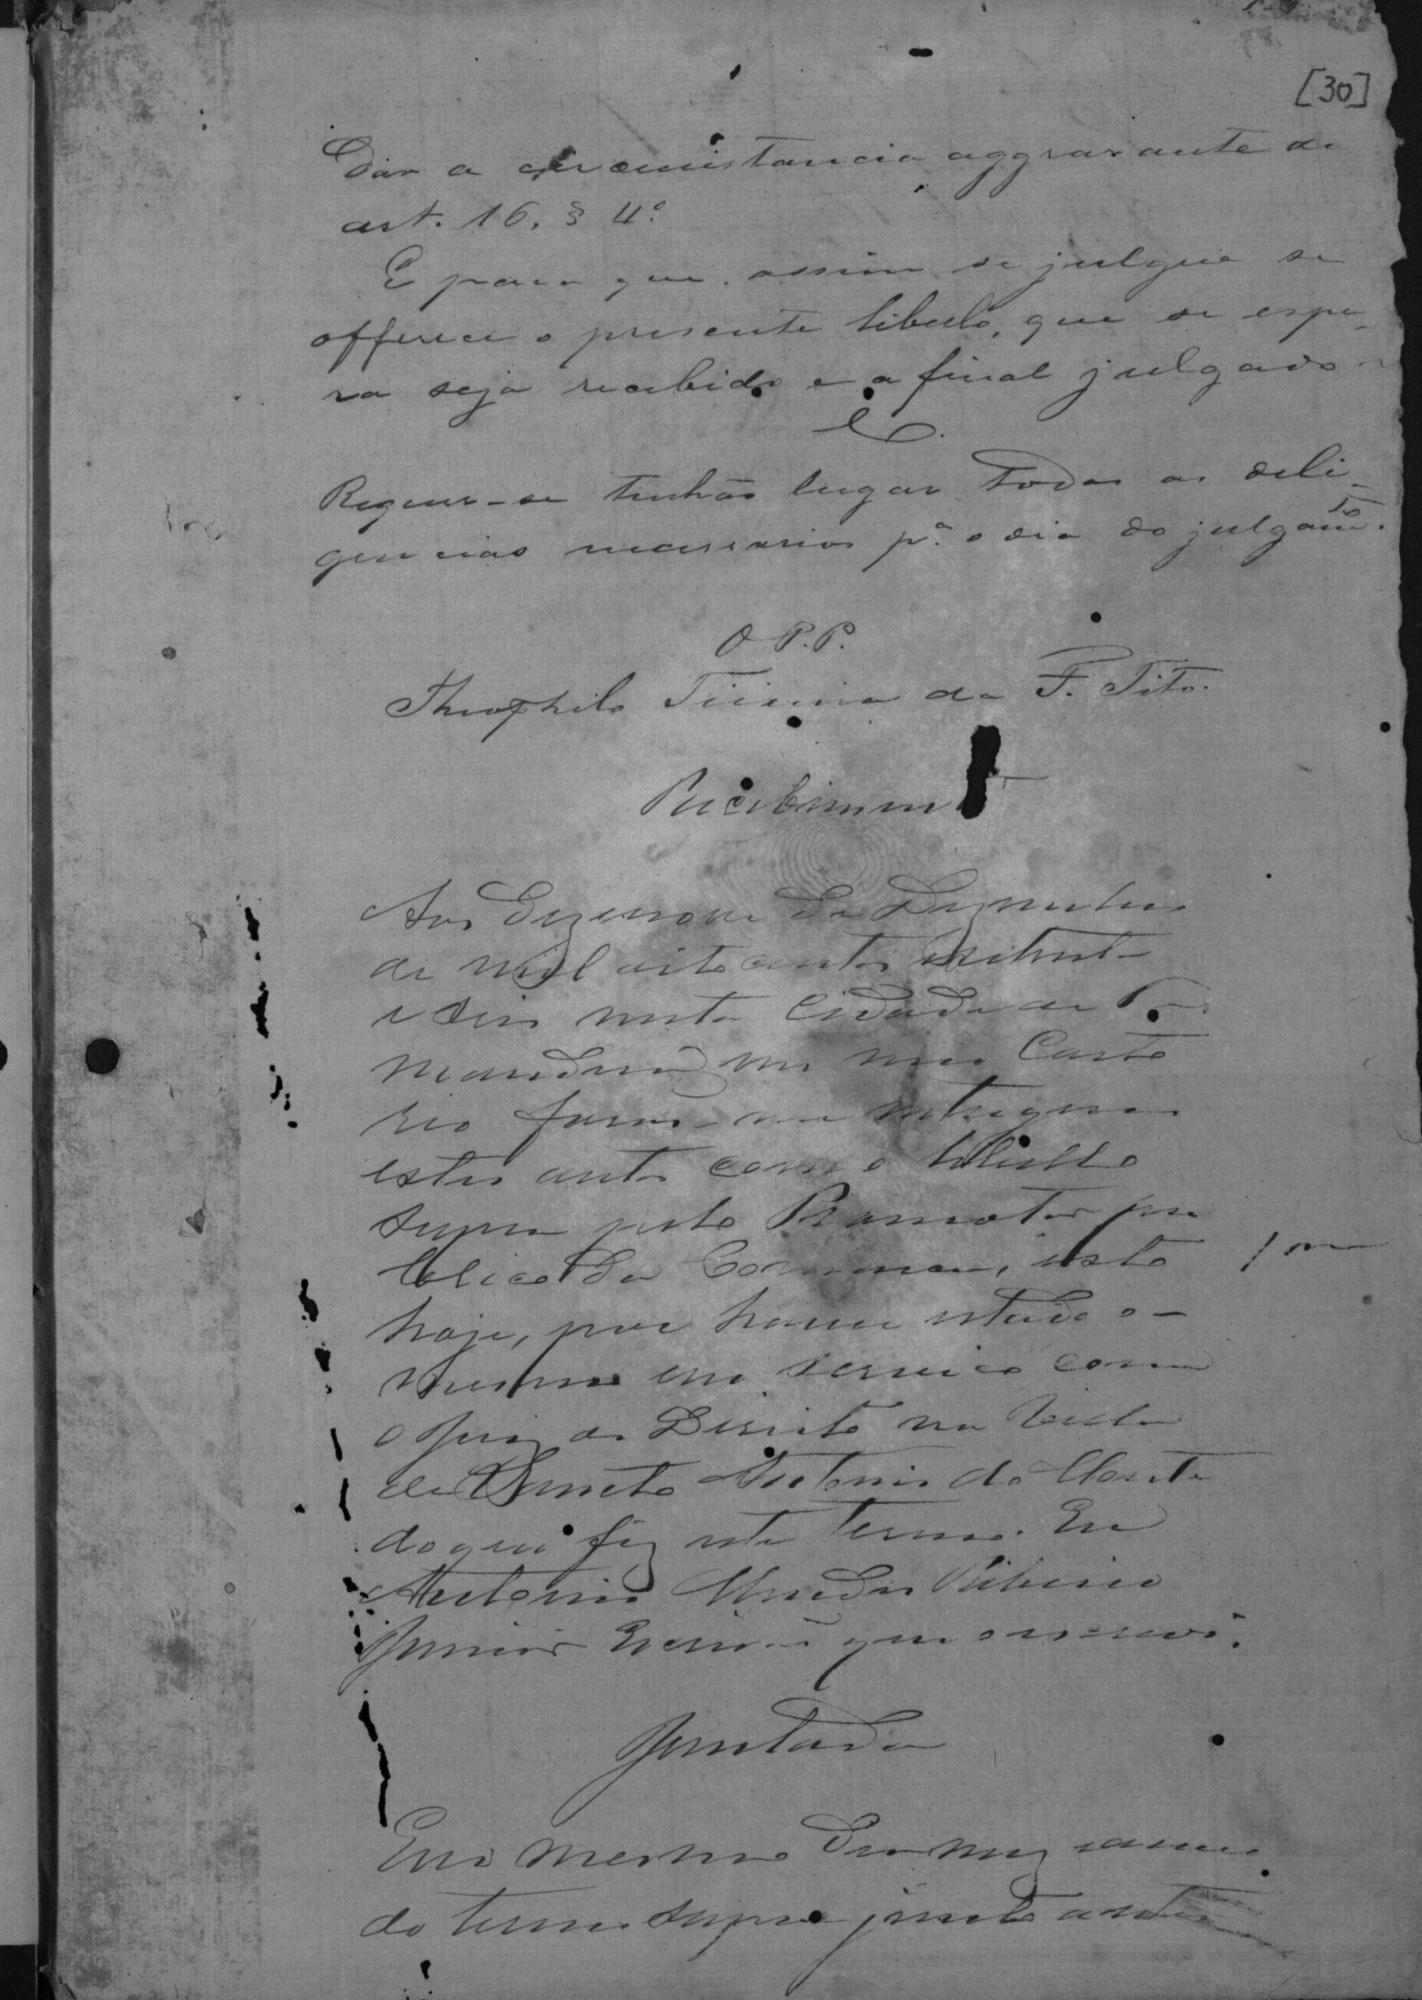 [30]
Dar a circumstancia aggravante do
art. 16. § 4º
E para que assim se julgue se
offerece o presente libello, que se espe-
ra seja recebido e a final julgado
E.
Requer-se tenhão lugar todas as deli-
gencias necessarias pª o dia do julgamto.
O P. P.
Theophilo da F. Tito.
Recebimento
Aos dezenove de Dezembro
de mil oito centos setenta
e seis nesta Cidade de
no meu Carto
rio forão-me entregues
estes autos com o libello
supra pelo Promotor pu
blico da Commarca, isto
hoje, por haver estado o
mesmo em serviço com
o Juiz de Direito na Villa
de Santo Antonio do Monte
do que fiz este termo. Eu
Antonio Ribeiro
Junior Escrivão que o escrevi.
Juntada
Em o mesmo dia mez e anno
do termo supra junto a estes